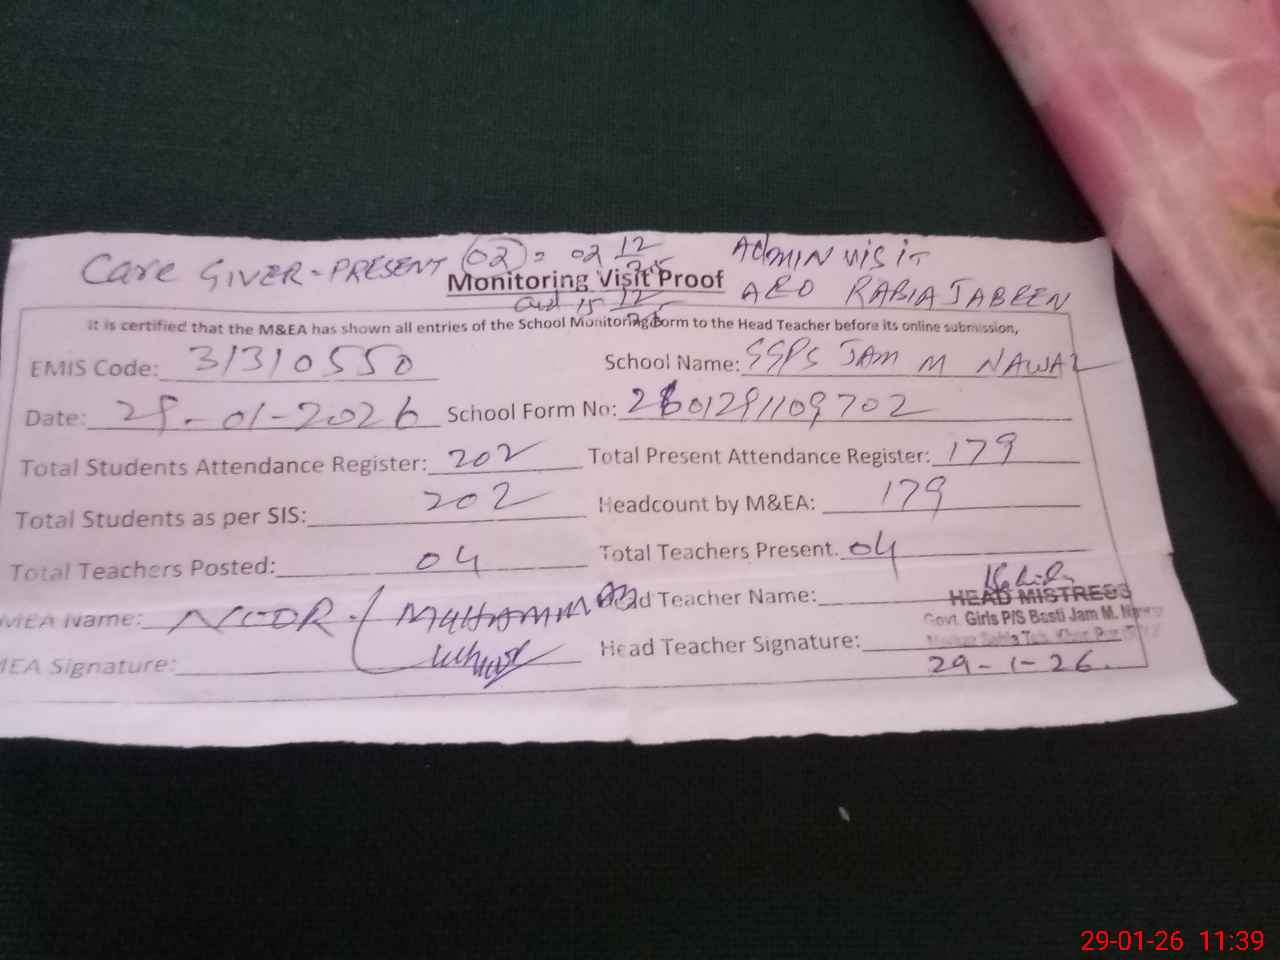 Care GIVER - PRESENT (02) = 02 12 ADMIN VISIT
Monitoring Visit Proof AEO RABIA JABEEN
and 15 12
It is certified that the M&EA has shown all entries of the School Monitoring Form to the Head Teacher before its online submission,
EMIS Code: 31310550 School Name: GGPS JAM M NAWAZ
Date: 29-01-2026 School Form No: 2601291109702
Total Students Attendance Register: 202 Total Present Attendance Register: 179
Total Students as per SIS: 202 Headcount by M&EA: 179
Total Teachers Posted: 04 Total Teachers Present. 04
MEA Name: NOOR MUHAMMAD Head Teacher Name:
HEAD MISTRESS
Govt. Girls P/S Basti Jam M. Nawaz
MEA Signature: Head Teacher Signature:
29-1-26.
29-01-26 11:39